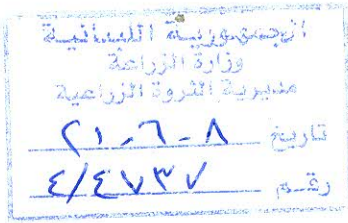 الجمهورية اللبنانية
وزارة الزراعة
مديرية الثروة الزراعية
تاريخ ٨-٦-٢١
رقم ٤/٤٧٣٧